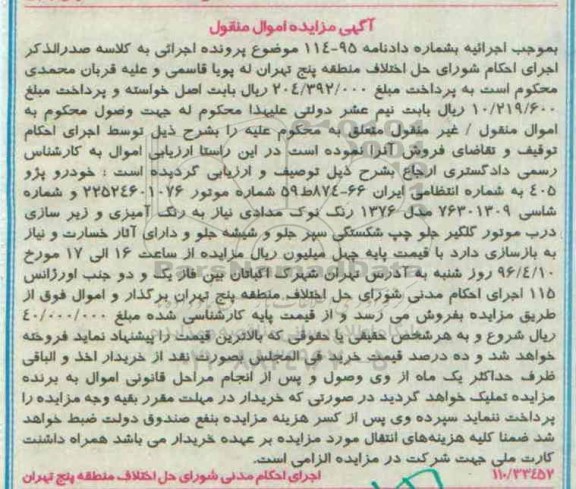 آگهی مزایده اموال منقول
بموجب اجرائیه بشماره دادنامه ۹۵-۱۱۴ موضوع پرونده اجرائی به کلاسه صدرالذکر
اجرای احکام شورای حل اختلاف منطقه پنج تهران له پویا قاسمی و علیه قربان محمدی
محکوم است به پرداخت مبلغ ۲۰۴/۳۹۲/۰۰۰ ریال بابت اصل خواسته و پرداخت مبلغ
۱۰/۲۱۹/۶۰۰ ریال بابت نیم عشر دولتی علیهذا محکوم له جهت وصول محکوم به
اموال منقول / غیر منقول متعلق به محکوم علیه را بشرح ذیل توسط اجرای احکام
توقیف و تقاضای فروش آنرا نموده است در این راستا ارزیابی اموال به کارشناس
رسمی دادگستری ارجاع بشرح ذیل توصیف و ارزیابی گردیده است : خودرو پژو
۴۰۵ به شماره انتظامی ایران ۶۶-۸۷۴ط۵۹ شماره موتور ۲۲۵۲۴۶۰۱۰۷۶ و شماره
شاسی ۷۶۳۰۱۳۰۹ مدل ۱۳۷۶ رنگ نوک مدادی نیاز به رنگ آمیزی و زیر سازی
درب موتور گلگیر جلو چپ شکستگی سپر جلو و شیشه جلو و دارای آثار خسارت و نیاز
به بازسازی دارد با قیمت پایه چهل میلیون ریال مزایده از ساعت ۱۶ الی ۱۷ مورخ
۹۶/۴/۱۰ روز شنبه به آدرس تهران شهرک اکباتان بین فاز یک و دو جنب اورژانس
۱۱۵ اجرای احکام مدنی شورای حل اختلاف منطقه پنج تهران برگذار و اموال فوق از
طریق مزایده بفروش می رسد و از قیمت پایه کارشناسی شده مبلغ ۴۰/۰۰۰/۰۰۰
ریال شروع و به هرشخص حقیقی یا حقوقی که بالاترین قیمت را پیشنهاد نماید فروخته
خواهد شد و ده درصد قیمت خرید فی المجلس بصورت نقد از خریدار اخذ و الباقی
ظرف حداکثر یک ماه از وی وصول و پس از انجام مراحل قانونی اموال به برنده
مزایده تملیک خواهد گردید در صورتی که خریدار در مهلت مقرر بقیه وجه مزایده را
پرداخت ننماید سپرده وی پس از کسر هزینه مزایده بنفع صندوق دولت ضبط خواهد
شد ضمنا کلیه هزینه‌های انتقال مورد مزایده بر عهده خریدار می باشد همراه داشتت
کارت ملی جهت شرکت در مزایده الزامی است.
۱۱۰/۳۳۴۵۲ اجرای احکام مدنی شورای حل اختلاف منطقه پنج تهران